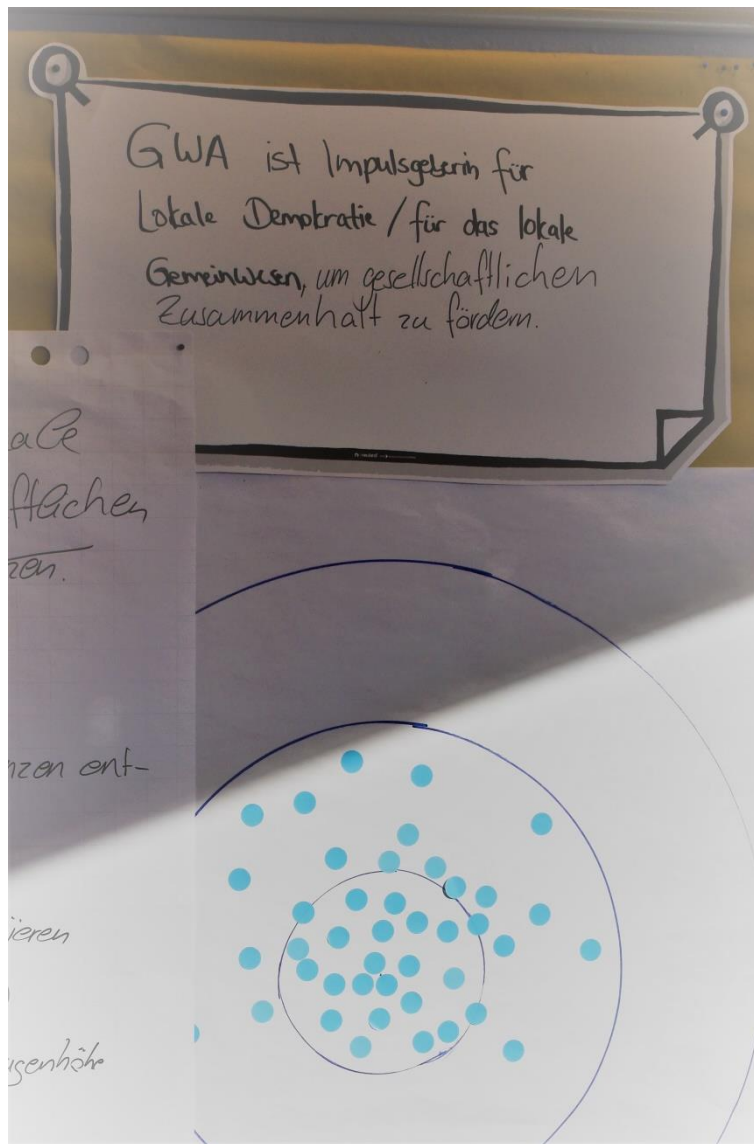 GWA ist Impulsgeberin für
Lokale Demokratie / für das lokale
Gemeinwesen, um gesellschaftlichen
Zusammenhalt zu fördern.
ale
ftlichen
zen.
nzen ent-
ieren
ugenhöhe